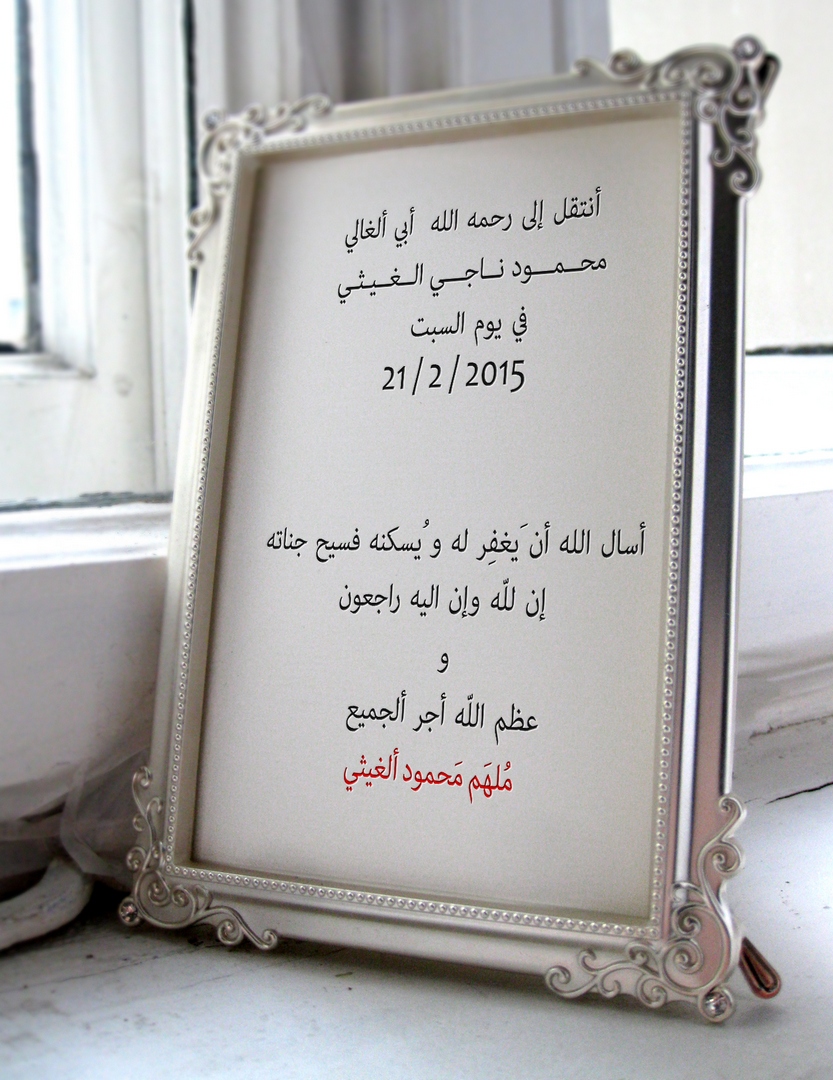 أنتقل إلى رحمه الله أبي ألغالي
محـمـــود نــاجـــي الـغـيـثـي
في يوم السبت
21 / 2 / 2015
أسال الله أن َيغفِر له و ُيسكنه فسيح جناته
إن للّه وإن اليه راجعون
و
عظم اللّه أجر ألجميع
مُلهَم مَحمود ألغيثي